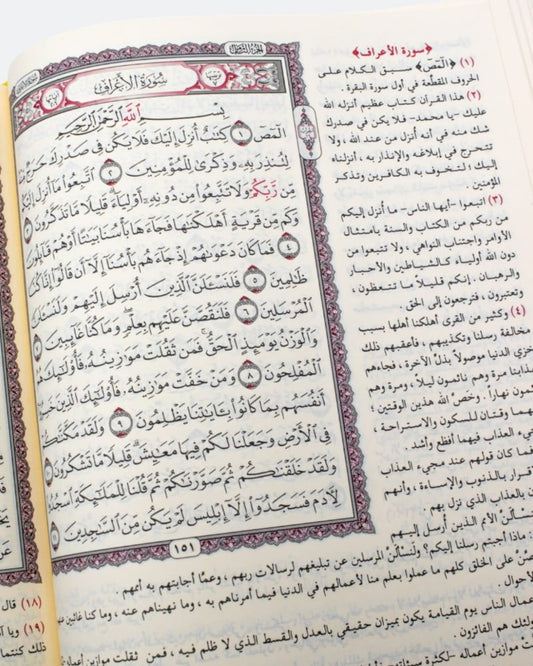 سورة الأعراف
بسم الله الرحمن الرحيم
الٓمٓصٓ ١ كِتَٰبٌ أُنزِلَ إِلَيْكَ فَلَا يَكُن فِى صَدْرِكَ حَرَجٌ
لِتُنذِرَ بِهِۦ وَذِكْرَىٰ لِلْمُؤْمِنِينَ ٢ ٱتَّبِعُوا۟ مَآ أُنزِلَ
مِّن رَّبِّكُمْ وَلَا تَتَّبِعُوا۟ مِن دُونِهِۦٓ أَوْلِيَآءَ ۗ قَلِيلًا مَّا تَذَكَّرُونَ ٣
وَكَم مِّن قَرْيَةٍ أَهْلَكْنَٰهَا فَجَآءَهَا بَأْسُنَا بَيَٰتًا أَوْ هُمْ قَآئِلُونَ
٤ فَمَا كَانَ دَعْوَىٰهُمْ إِذْ جَآءَهُم بَأْسُنَآ إِلَّآ أَن قَالُوٓا۟ إِنَّا كُنَّا
ظَٰلِمِينَ ٥ فَلَنَسْـَٔلَنَّ ٱلَّذِينَ أُرْسِلَ إِلَيْهِمْ وَلَنَسْـَٔلَنَّ
ٱلْمُرْسَلِينَ ٦ فَلَنَقُصَّنَّ عَلَيْهِم بِعِلْمٍ ۖ وَمَا كُنَّا غَآئِبِينَ ٧
وَٱلْوَزْنُ يَوْمَئِذٍ ٱلْحَقُّ ۚ فَمَن ثَقُلَتْ مَوَٰزِينُهُۥ فَأُو۟لَٰٓئِكَ هُمُ
ٱلْمُفْلِحُونَ ٨ وَمَنْ خَفَّتْ مَوَٰزِينُهُۥ فَأُو۟لَٰٓئِكَ ٱلَّذِينَ خَسِرُوٓا۟
أَنفُسَهُم بِمَا كَانُوا۟ بِـَٔايَٰتِنَا يَظْلِمُونَ ٩ وَلَقَدْ مَكَّنَّٰكُمْ
فِى ٱلْأَرْضِ وَجَعَلْنَا لَكُمْ فِيهَا مَعَٰيِشَ ۗ قَلِيلًا مَّا تَشْكُرُونَ ١٠
وَلَقَدْ خَلَقْنَٰكُمْ ثُمَّ صَوَّرْنَٰكُمْ ثُمَّ قُلْنَا لِلْمَلَٰٓئِكَةِ ٱسْجُدُوا۟
لِـَٔادَمَ فَسَجَدُوٓا۟ إِلَّآ إِبْلِيسَ لَمْ يَكُن مِّنَ ٱلسَّٰجِدِينَ ١١
١٥١
﴿سورة الأعراف﴾
(١) ﴿الٓمٓصٓ﴾ سبق الكلام على
الحروف المقطّعة في أول سورة البقرة .
(٢) هذا القرآن كتاب عظيم أنزله الله
عليك -يا محمد- فلا يكن في صدرك
شك منه في أنه أُنزل من عند الله ، ولا
تتحرج في إبلاغه والإنذار به ، أنزلناه
إليك لتخوف به الكافرين وتذكر
المؤمنين .
(٣) اتبعوا -أيها الناس- ما أُنزل إليكم
من ربكم من الكتاب والسنة بامتثال
الأوامر واجتناب النواهي ، ولا تتبعوا من
دون الله أولياء كالشياطين والأحبار
والرهبان . إنكم قليلاً ما تتعظون ،
وتعتبرون ، فترجعون إلى الحق
(٤) وكثير من القرى أهلكنا أهلها بسبب
مخالفة رسلنا وتكذيبهم ، فأعقبهم ذلك
خزي الدنيا موصولاً بذلّ الآخرة ، فجاءهم
عذابنا مرة وهم نائمون ليلاً ، ومرة وهم
نائمون نهاراً . وخصَّ الله هذين الوقتين ؛
لأنهما وقتان للسكون والاستراحة ،
العذاب فيهما أفظع وأشد .
فما كان قولهم عند مجيء العذاب
الإقرار بالذنوب والإساءة ، وأنهم
بالعذاب الذي نزل بهم .
الأمم الذين أُرسل إليهم
ماذا أجبتم رسلنا إليكم؟ ولنسألَنَّ المرسلين عن تبليغهم لرسالات ربهم ، وعمَّا أجابتهم به أممهم .
على الخلق كلهم ما عملوا بعلم منا لأعمالهم في الدنيا فيما أمرناهم به ، وما نهيناهم عنه ، وما كنا غائبين
الأحوال .
أعمال الناس يوم القيامة يكون بميزان حقيقي بالعدل والقسط الذي لا ظلم فيه ، فمن ثقلت موازين
هم الفائزون .
موازين أعماله
(١٨) قال
(١٩) ويا